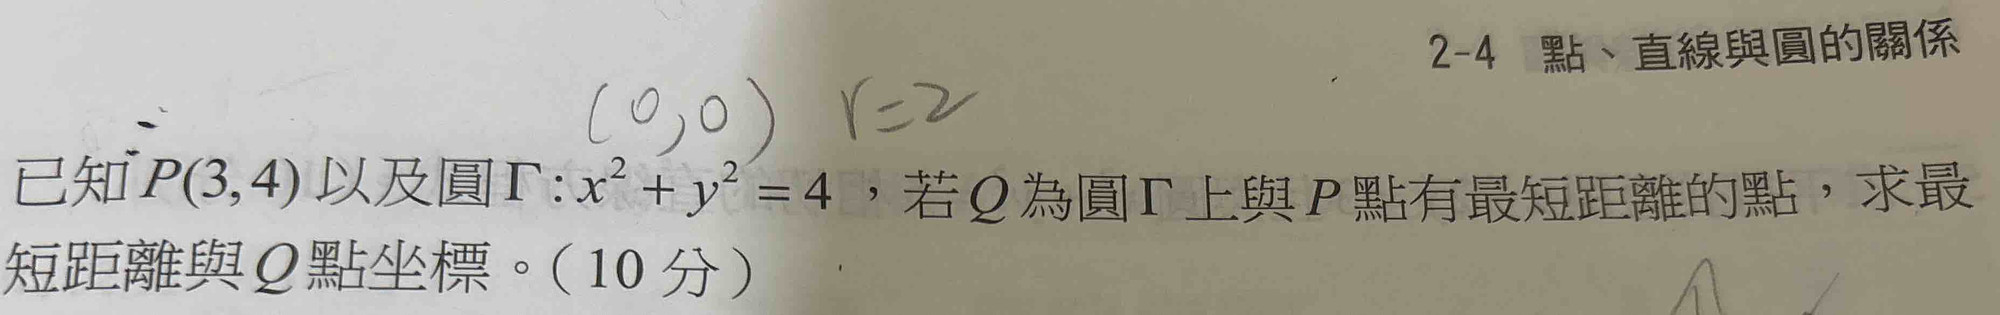 2-4 點、直線與圓的關係
(0,0) r=2
已知 P(3,4) 以及圓 Γ : x² + y² = 4 ，若 Q 為圓 Γ 上與 P 點有最短距離的點，求最
短距離與 Q 點坐標。（10 分）